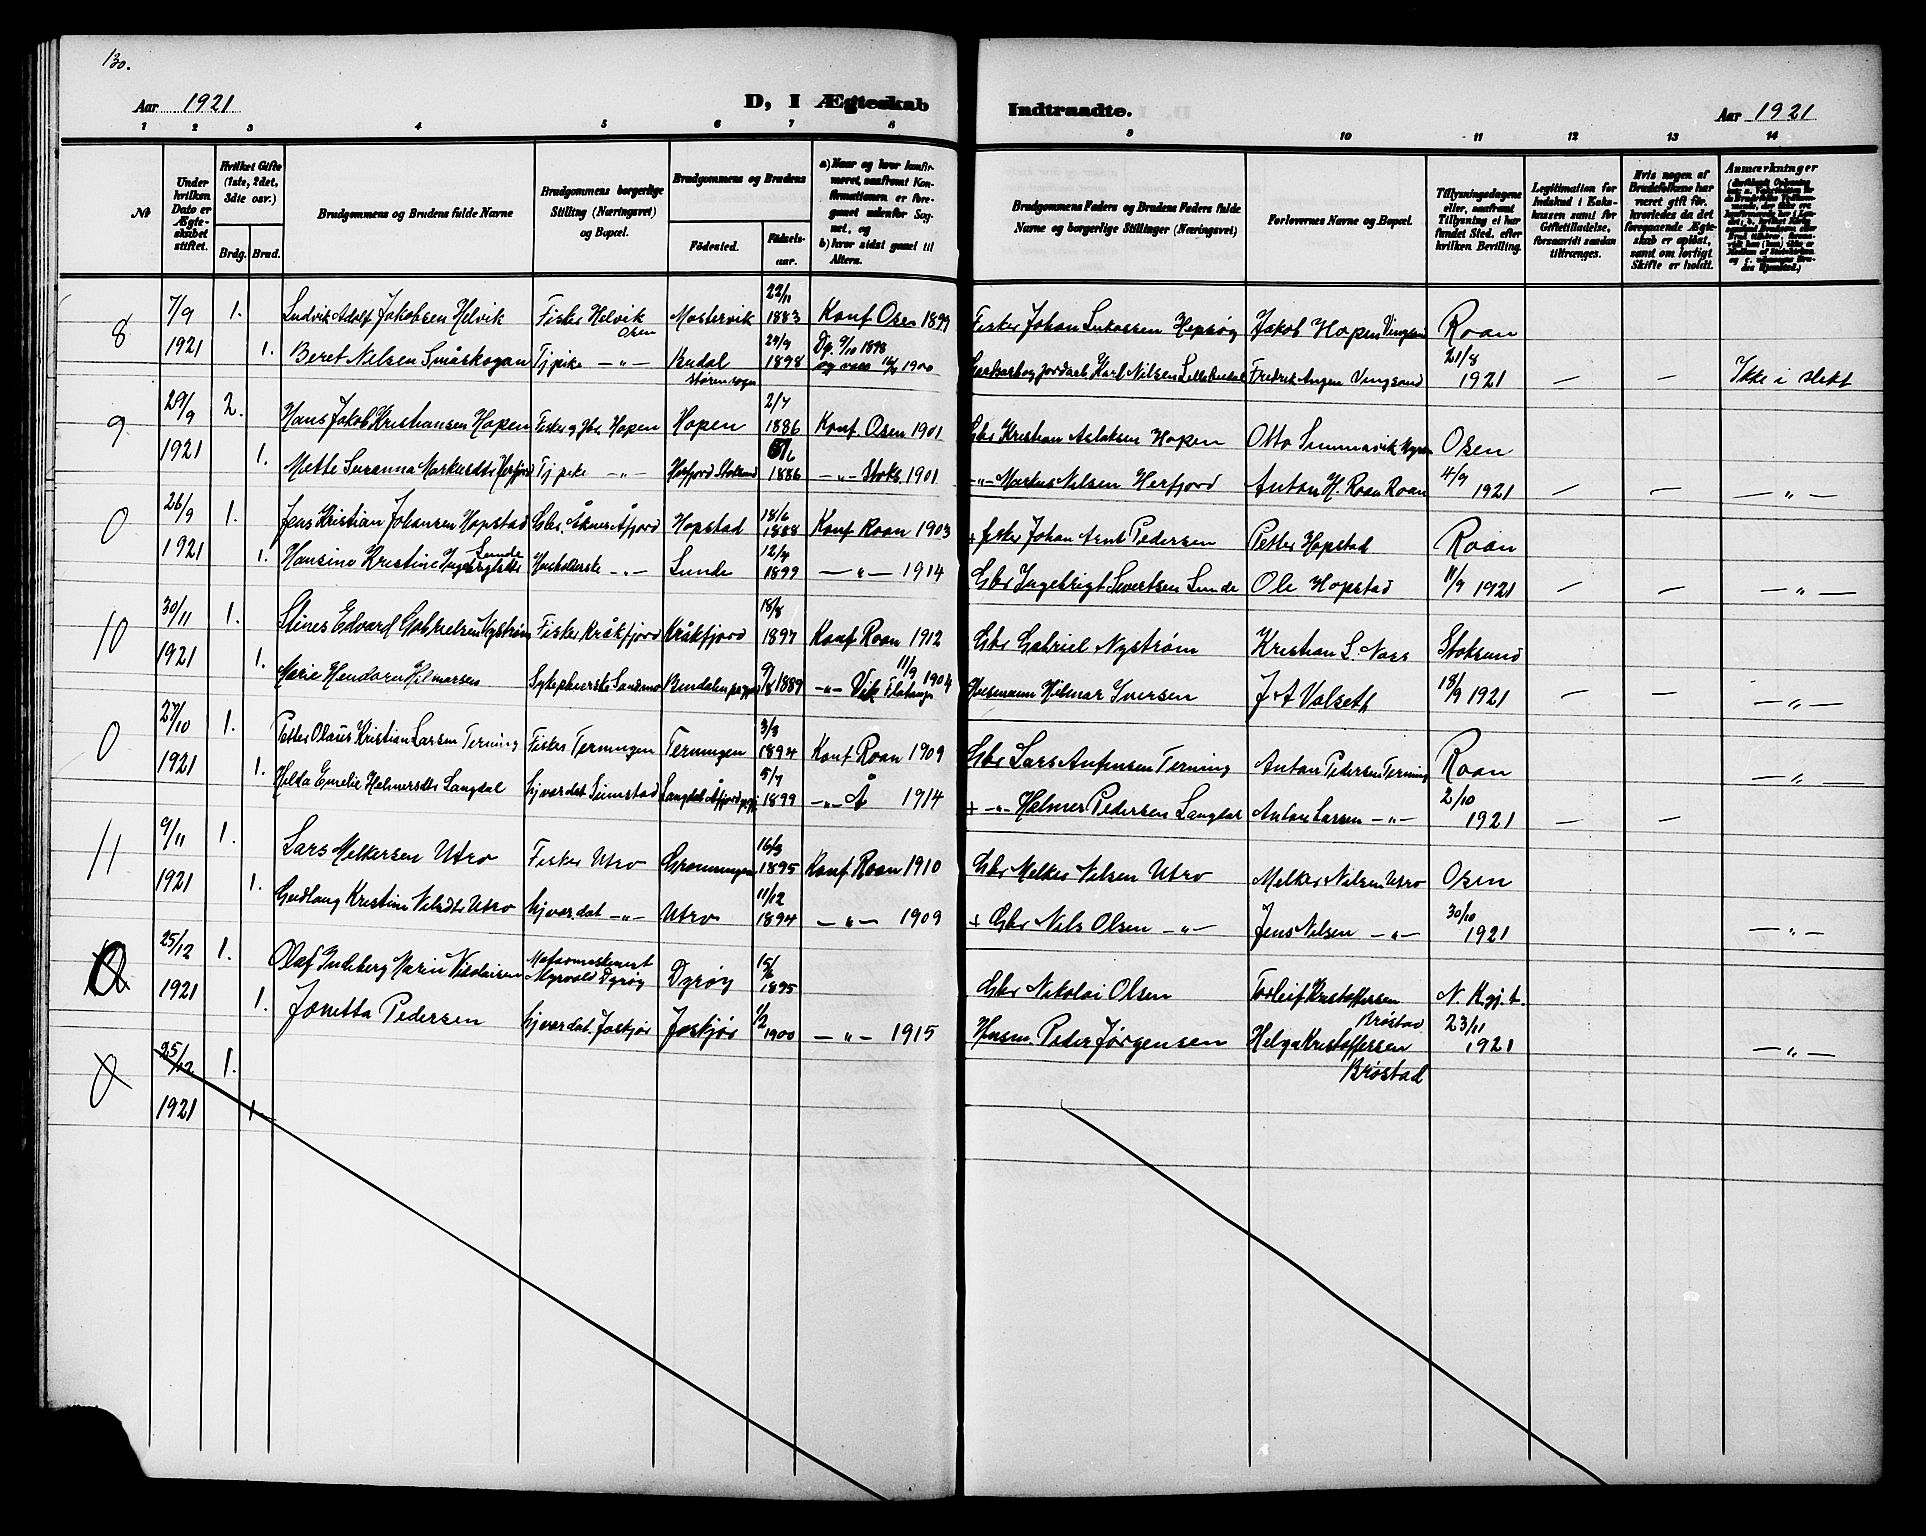 130.
Aar 1921 D, I Ægteskab
Indtraadte. Aar 1921
1 2 3 4 5 6 7 8 9 10 11 12 13 14
№
Under hvilken Dato er Ægteskabet stiftet.
Hvilket Gifte (1ste, 2det, 3die osv.)
Brdg. Brud.
Brudgommens og Brudens fulde Navne
Brudgommens borgerlige Stilling (Næringsvei) og Bopæl.
Brudgommens og Brudens
Födested. Födselsaar.
a) Naar og hvor konfirmeret, saafremt Konfirmationen er foregaaet udenfor Sognet, og
b) hvor sidst gaaet til Alters.
Brudgommens Faders og Brudens Faders fulde Navne og borgerlige Stillinger (Næringsvei)
Forlovernes Navne og Bopæl.
Tillysningsdagene eller, saafremt Tillysning ei har fundet Sted, efter hvilken Bevilling.
Legitimation for Indskud i Enkekassen samt for Giftetilladelse, forsaavidt saadan tiltrænges.
Hvis nogen af Brudefolkene har været gift før, hvorledes da det foregaaende Ægteskab er opløst, samt om lovligt Skifte er holdt.
Anmærkninger
8 7/9 1. Ludvik Adolf Jakobsen Helvik Fisker Helvik Osen Mostervik 22/11 1883 Konf Osen 1899 Fisker Johan Lukassen Hepsøy Jakob Hopen Vingsand Roan
1921 1. Beret Nilsen Småskogan Tj pike —"— Budal Størensogn 29/9 1898 Dp. 9/10 1898 og vacc 1900 Karl Nilsen Fredrik Angen Vingsand 21/8 1921 — — Ikke i slekt
9 29/9 2. Hans Jakob Kristiansen Hopen Fisker og Gbr Hopen Hopen 2/7 1886 Konf Osen 1901 Gbr Kristian Aslaksen Hopen Otto Osen
1921 1. Mette Susanna Markusdtr Herfjord Tj pike —"— Herfjord Stoksund 1886 —"— Stoks. 1901 —"— Markus Nilsen Herfjord Anton H. Roan Roan 4/9 1921 — — —"—
0 26/9 1. Jens Kristian Johansen Hopstad Gbr. Åknes Åfjord Hopstad 18/6 1888 Konf Roan 1903 + fisker Johan Arnt Pedersen Petter Hopstad Roan
1921 1. Hansine Kristine Ingebrigtsdtr Sunde Husholderske —"— Sunde 12/4 1899 —"— 1914 Gbr Ingebrigt Sivertsen Sunde Ole Hopstad 11/9 1921 — — —"—
10 30/11 1. Stines Edvard Gabrielsen Nystrøm Fisker Kråkfjord Kråkfjord 18/8 1897 Konf Roan 1912 Gbr Gabriel Nystrøm Kristian L. Næss Stoksund
1921 1. Marie Hendora Hilmarsen Sykepleierske Sandmo 9/8 1889 —"— Vik Flatanger 11/9 1904 Husmann Hilmar Iversen J A Valseth 18/9 1921 — — —"—
0 27/10 1. Petter Olaus Kristian Larsen Terning Fisker Terningen Terningen 3/3 1894 Konf Roan 1909 Gbr Lars Antonsen Terning Anton Pedersen Terning Roan
1921 1. Hilda Emelie Helmersdtr Langdal hj.værdat Sumstad Langdal Åfjord pgj 5/7 1899 —"— Å 1914 + —"— Helmer Pedersen Langdal Anton Larsen —"— 2/10 1921 — — —"—
11 9/11 1. Lars Melkersen Utro Fisker Utro Grønningen 16/3 1895 Konf Roan 1910 Gbr Melker Nilsen Utro Melker Nilsen Utro Osen
1921 1. Gudlaug Kristine Nilsdtr Utro hj.værdat —"— Utro 11/12 1894 —"— 1909 + Gbr Nils Olsen —"— Jens Nilsen —"— 30/10 1921 —"—
0 25/12 1. Olaf Ingeberg Marin Nikolaisen Motormaskinist Myrvold Dyrøy Dyrøy 15/6 1895 Gbr Nikolai Olsen Torleif Kristoffersen Brøstad N. Kgj. t.
1921 1. Jonetta Pedersen hj.værdat. Joskjør Joskjør 1/2 1900 —"— 1915 Husm. Peder Jørgensen Helga Kristoffersen Brøstad 23/11 1921 —"—
0 25/12 1.
1921 1.